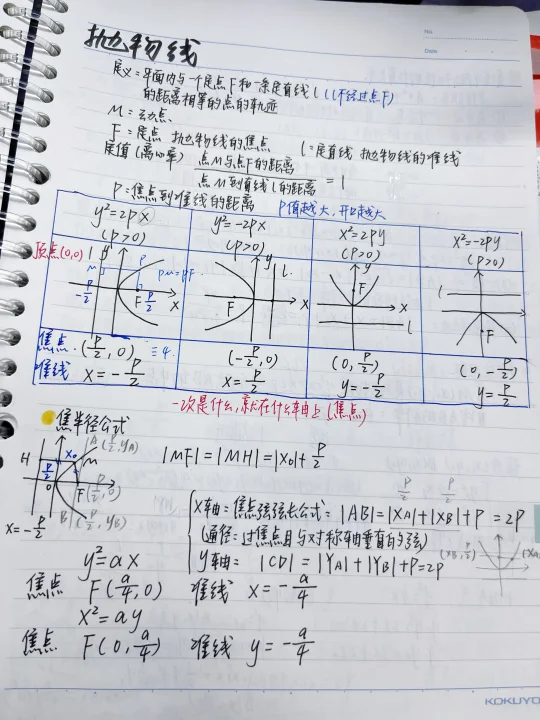 No.
Date
抛物线
定义=平面内与一个定点F和一条定直线l (l不经过点F)
的距离相等的点的轨迹
M=动点
F=定点 抛物线的焦点 l=定直线 抛物线的准线
定值(离心率) 点M与点F的距离/点M到直线l的距离 = 1
P=焦点到准线的距离 P值越大,开口越大
y²=2px (p>0) y²=-2px (p>0) x²=2py (p>0) x²=-2py (p>0)
顶点(0,0)
焦点·(p/2, 0) (-p/2, 0) (0, p/2) (0, -p/2)
准线 x=-p/2 x=p/2 y=-p/2 y=p/2
一次是什么,就在什么轴上(焦点)
焦半径公式
|MF|=|MH|=|x₀|+p/2
A(p/2, yA)
F(p/2, 0)
B(p/2, yB)
x=-p/2
x轴=焦点弦弦长公式=|AB|=|xA|+|xB|+p=2p
(通径=过焦点且与对称轴垂直的弦)
y轴= |CD|=|yA|+|yB|+p=2p
y²=ax
焦点 F(a/4, 0) 准线 x=-a/4
x²=ay
焦点 F(0, a/4) 准线 y=-a/4
KOKUYO